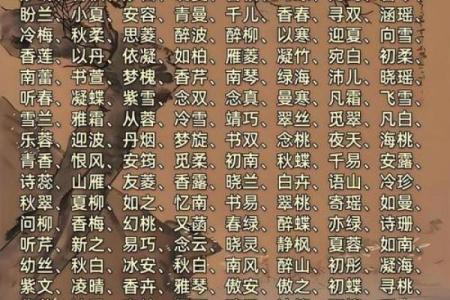 盼兰、小夏、安容、青曼、千儿、香春、寻双、涵瑶、
冷梅、秋柔、思菱、醉波、醉柳、以寒、迎夏、向雪、
香莲、以丹、依凝、如柏、雁菱、凝竹、宛白、初柔、
南蕾、书萱、梦槐、香芹、南琴、绿海、沛儿、晓瑶、
听春、凝蝶、紫雪、念双、念真、曼寒、凡霜、飞雪、
雪兰、雅霜、从蓉、冷雪、靖巧、翠丝、觅翠、凡白、
乐蓉、迎波、丹烟、梦旋、书双、念桃、夜天、海桃、
青香、恨风、安筠、觅柔、初南、秋蝶、千易、安露、
诗蕊、山雁、友菱、香露、晓兰、白卉、语山、冷珍、
秋翠、夏柳、如之、忆南、书易、翠桃、寄瑶、如曼、
问柳、香梅、幻桃、又菡、春绿、醉蝶、亦绿、诗珊、
听芹、新之、易巧、念云、晓灵、静枫、夏蓉、如南、
幼丝、秋白、冰安、秋白、南风、醉山、初彤、凝海、
紫文、凌晴、香卉、雅琴、傲安、傲之、初蝶、寻桃、